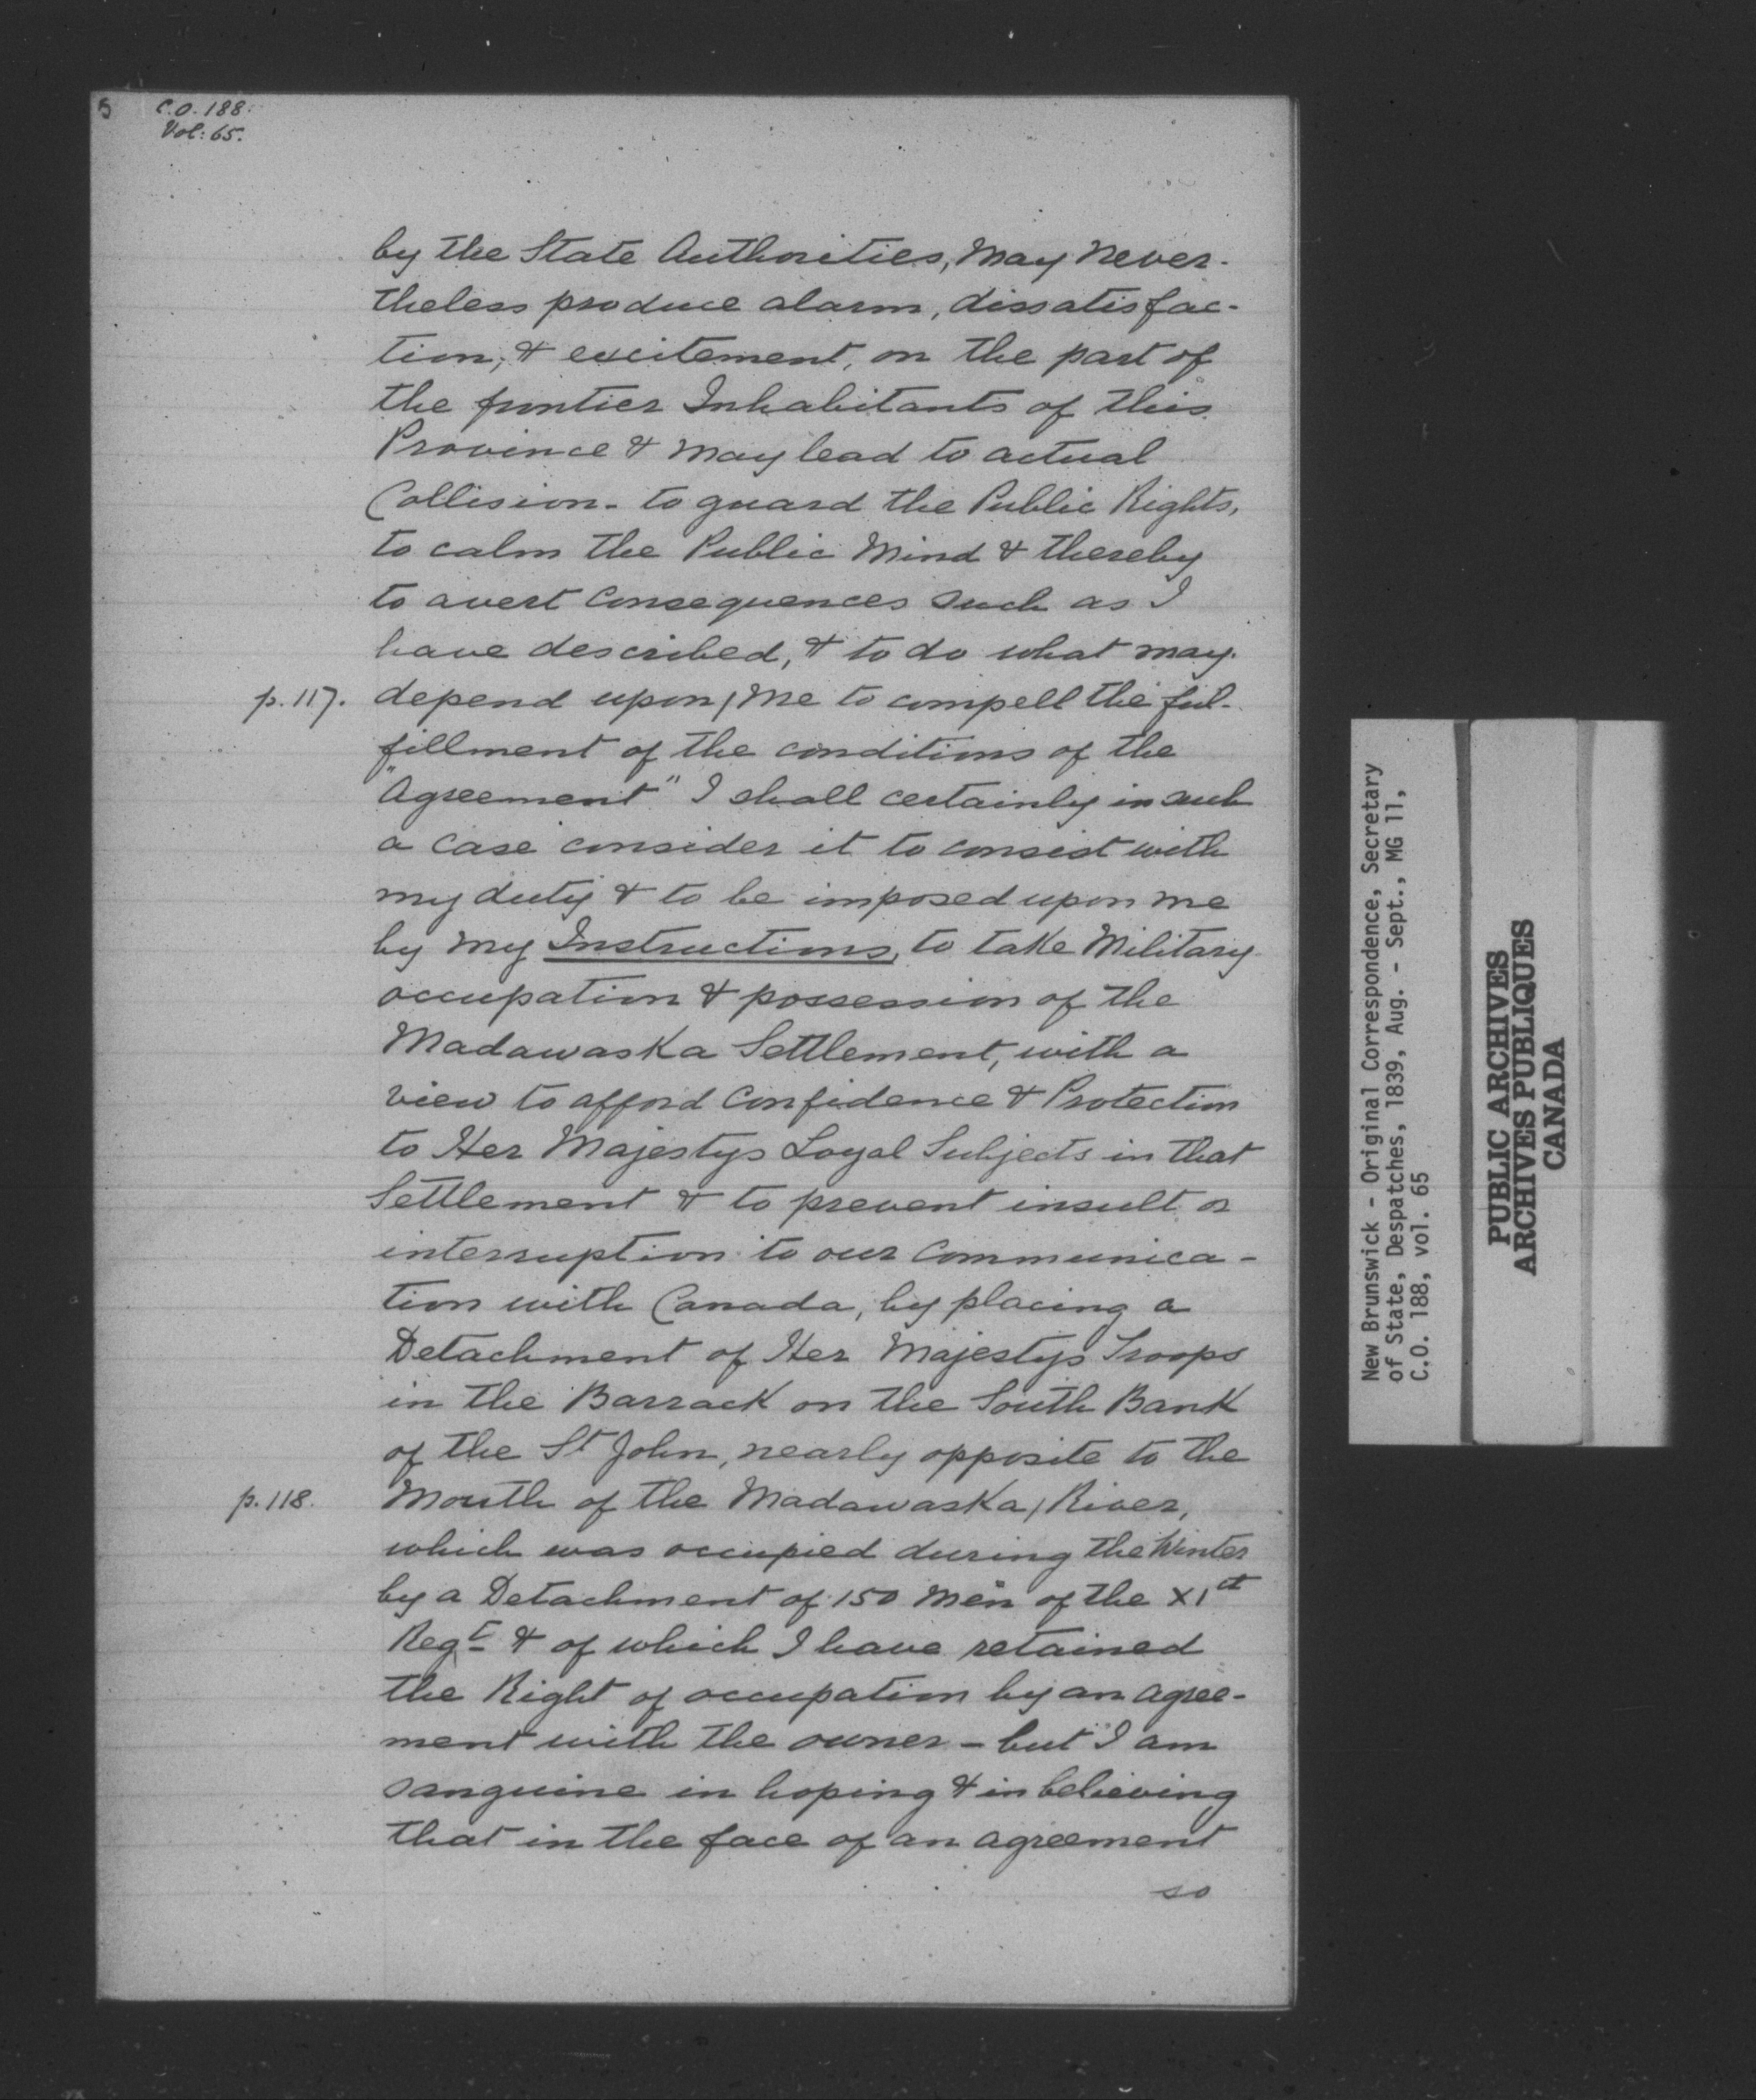 5
C.O. 188.
Vol: 65.
by the State Authorities, may never-
theless produce alarm, dissatisfac-
tion, & excitement, on the part of
the frontier Inhabitants of this
Province & may lead to actual
Collision - to guard the Public Rights,
to calm the Public Mind & thereby
to avert Consequences such as I
have described, & to do what may
p. 117. depend upon / me to compell the ful-
fillment of the conditions of the
"Agreement" I shall certainly in such
a Case consider it to consist with
my duty & to be imposed upon me
by my Instructions, to take Military
occupation & possession of the
Madawaska Settlement, with a
view to afford Confidence & Protection
to Her Majestys Loyal Subjects in that
Settlement & to prevent insult or
interruption to our Communica-
tion with Canada, by placing a
Detachment of Her Majestys Troops
in the Barrack on the South Bank
of the St John, nearly opposite to the
p. 118. Mouth of the Madawaska / River,
which was occupied during the Winter
by a Detachment of 150 Men of the XIst
Regt & of which I have retained
the Right of occupation by an agree-
ment with the owner - but I am
sanguine in hoping & in believing
that in the face of an agreement
so
New Brunswick - Original Correspondence, Secretary
of State, Despatches, 1839, Aug. - Sept., MG 11,
C.O. 188, vol. 65
PUBLIC ARCHIVES
ARCHIVES PUBLIQUES
CANADA